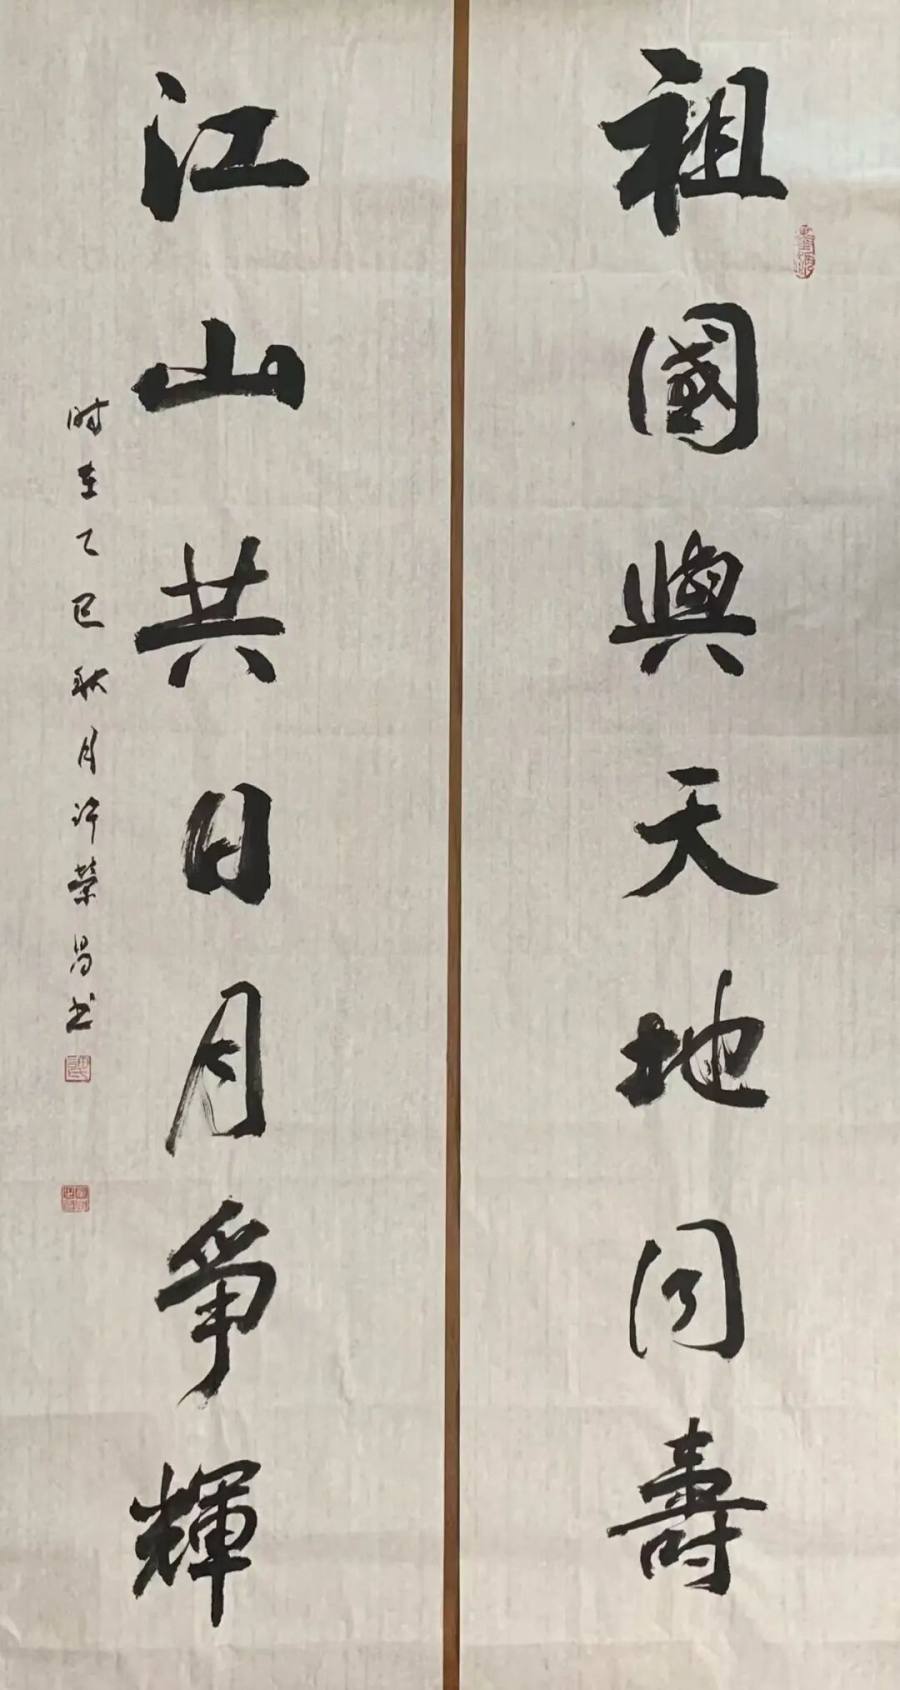 祖國與天地同壽
江山共日月爭輝
时在乙巳秋月许榮昌书